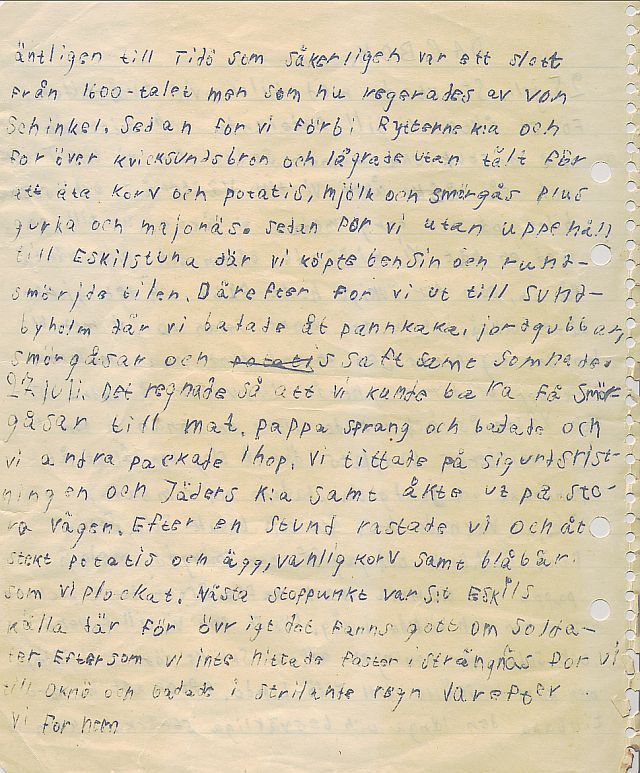 äntligen till Tidö som säkerligen var ett slott
från 1600-talet men som nu regerades av von
Schinkel. Sedan for vi förbi Rytterne k:a och
for över kvicksundsbron och lägrade utan tält för
att äta korv och potatis, mjölk och smörgås plus
gurka och majonäs. sedan for vi utan uppehåll
till Eskilstuna där vi köpte bensin och rund-
smörjde bilen. Därefter for vi ut till Sund-
byholm där vi badade åt pannkaka, jordgubbar,
smörgåsar och potatis saft samt somnade.
27 juli. Det regnade så att vi kunde bara få smör-
gåsar till mat. pappa sprang och badade och
vi andra packade ihop. vi tittade på sigurdsrist-
ningen och Jäders k:a samt åkte ut på sto-
ra vägen. Efter en stund rastade vi och åt
stekt potatis och ägg, vanlig korv samt blåbär
som vi plockat. Nästa stoppunkt var S:t Eskils
källa där för övrigt det fanns gott om solda-
ter. Eftersom vi inte hittade faster i strängnäs for vi
till Oknö och badade i strilande regn varefter
vi for hem